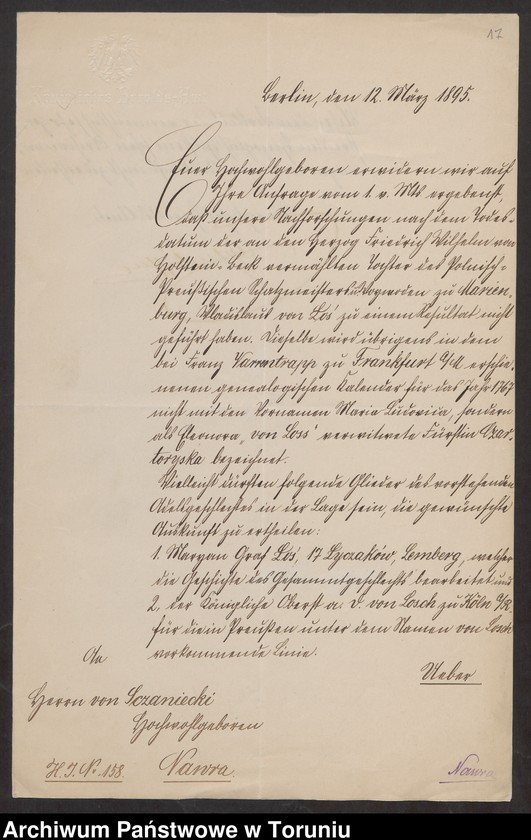 17
Berlin, den 12. März 1895.
Euer Hochwohlgeboren erwidern wir auf
Ihre Anfrage vom 1. v. Mts ergebenst,
daß unsere Nachforschungen nach dem Todes-
datum der an den Herzog Friedrich Wilhelm von
Holstein-Beck vermählten Tochter des Polnisch-
Preußischen Schatzmeisters u. Wogwoden zu Marien-
burg, Wladislaus von Loś zu einem Resultat nicht
geführt haben. Dieselbe wird übrigens in dem
bei Franz Varrentrapp zu Frankfurt a/M erschie-
nenen genealogischen Kalender für das Jahr 1767
nicht mit den Vornamen Maria Ludoviia, sondern
als Eleonora „von Loss" verwitwete Fürstin Czar-
toryska bezeichnet.
Vielleicht dürften folgende Glieder des vorstehenden
Adelsgeschlechtes in der Lage sein, die gewünschte
Auskunft zu ertheilen:
1. Maryan Graf Loś, 17 Lyczaków, Lemberg, welcher
die Geschichte des Gesammtgeschlechts bearbeitet und
2, der Königliche Oberst a. D. von Losch zu Köln a/R.
für die in Preußen unter dem Namen von Losch
vorkommende Linie.
Ueber
An
Herrn von Sczaniecki
Hochwohlgeboren
H. J. No. 158.
Nawra.
Nawra
Archiwum Państwowe w Toruniu